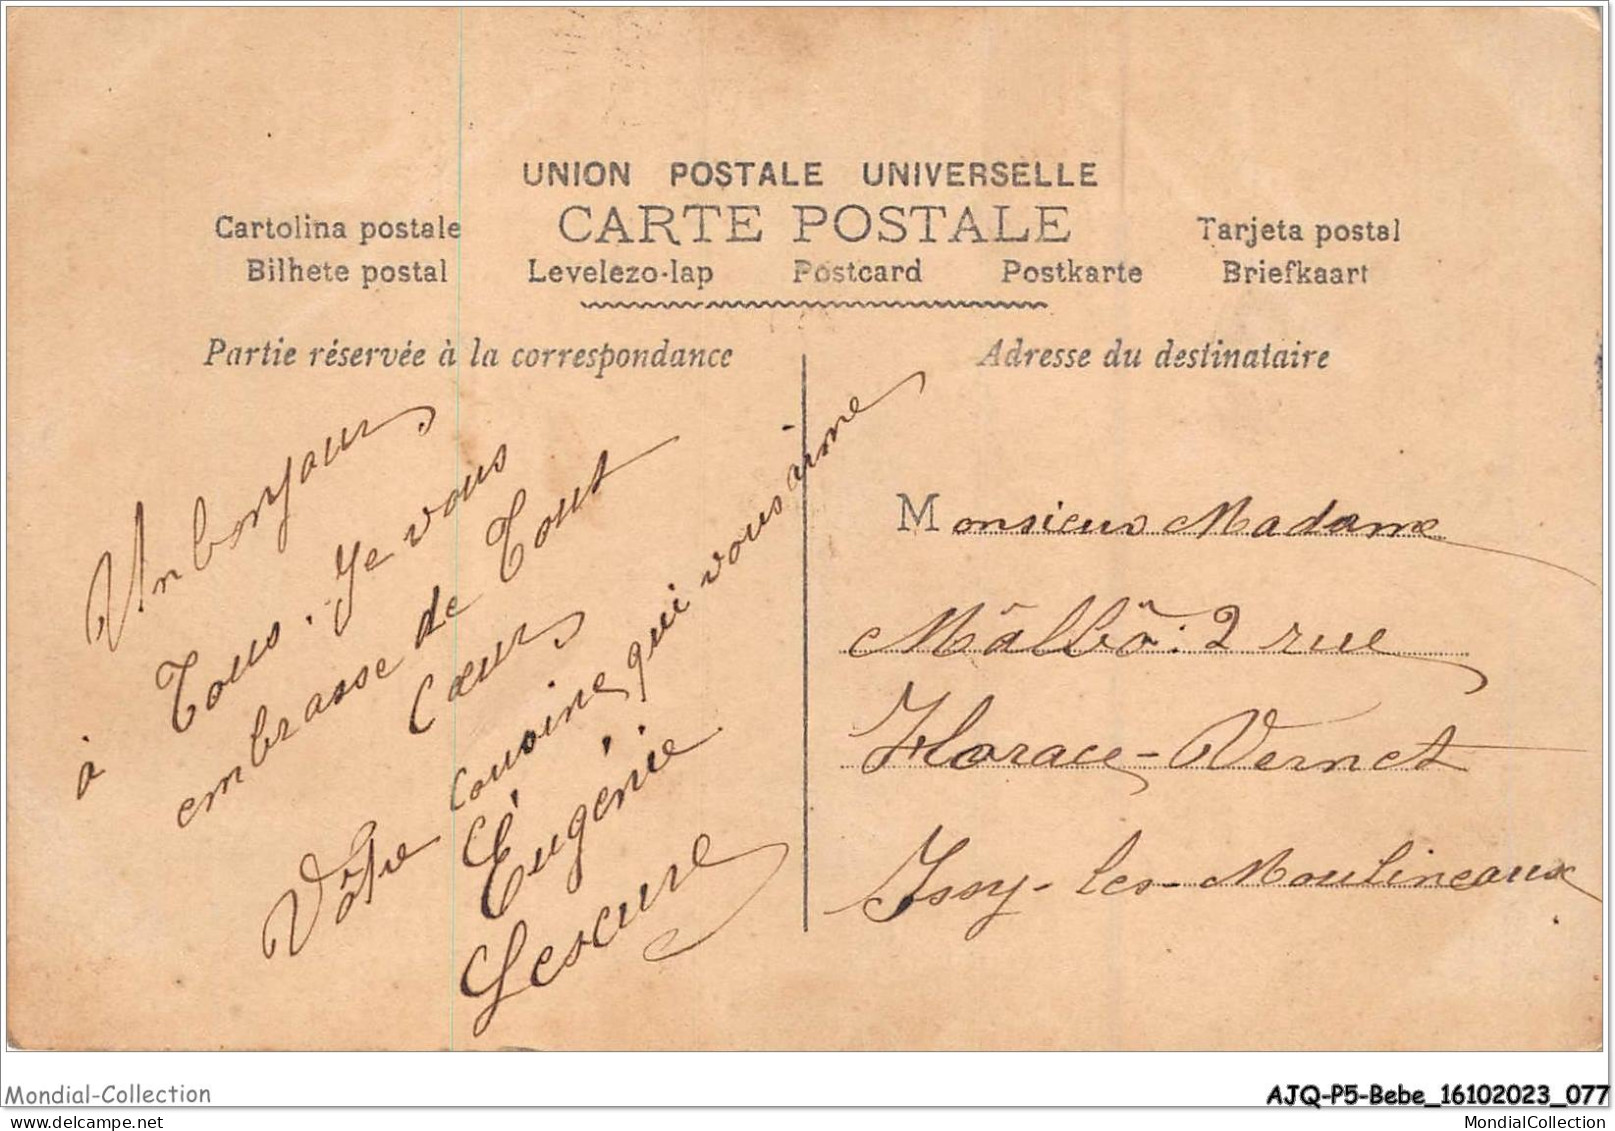 UNION POSTALE UNIVERSELLE
CARTE POSTALE
Cartolina postale
Tarjeta postal
Bilhete postal Levelezo-lap Postcard Postkarte Briefkaart
Partie réservée à la correspondance
Adresse du destinataire
Un bonjour
à Tous. Je vous
embrasse de Tout
Cœur
Vôtre cousine qui vous aime
Eugénie
Lescure
Monsieur Madame
Mâlbô. 2 rue
Horace-Vernet
Issy-les-Moulineaux
Mondial-Collection
AJQ-P5-Bebe_16102023_077
MondialCollection
MondialCollection